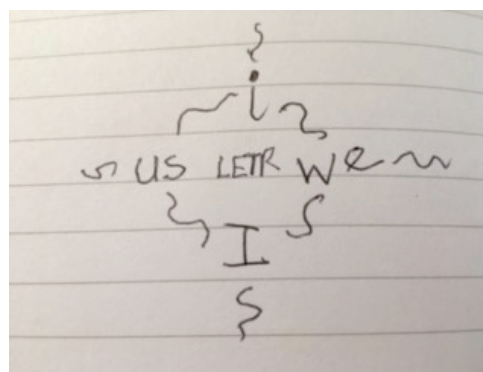 i
us LETR we
I